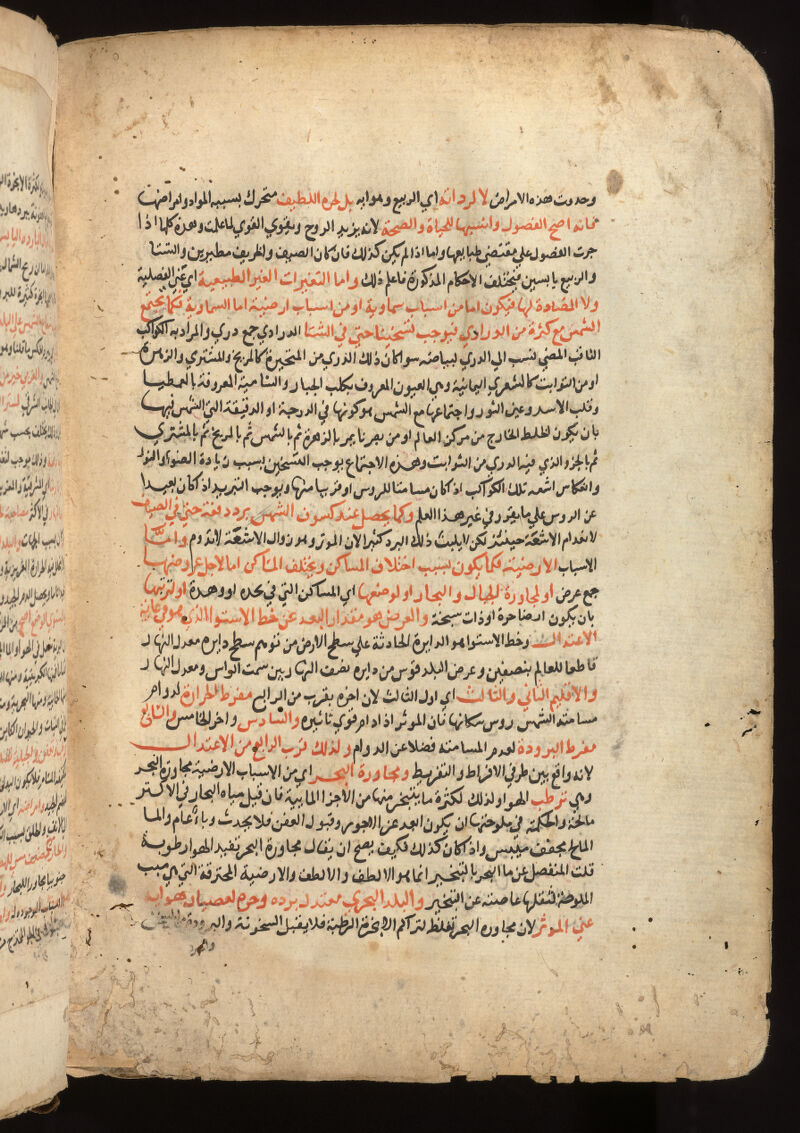 وحدوث هذه الامراض لا لرداته اي الربيع وهوايه بل لحره اللطيف متحرك بسببه المواد وامراضها
فانه اصح الفصول وانسبها للحياة والصحة لانه يزيد الروح ويقوي القوي لما علمت وهذه كلها اذا
جرت الفصول علي مقتضي طبايعها واما اذا لم يكن كذلك فان كان الصيف والخريف مطيرين والشتا
والربيع يابسين فيختلف الاحكام المذكورة فاعلم ذلك واما التغيرات الغير الطبيعية اي غير الفصلية
ولا المضادة لها فيكون اما من اسباب سماوية او من اسباب ارضية اما السماوية فكما يجتمع
الشمس مع كثرة من الدراري فيوجب تسخينا حتي في الشتا الدراري جمع دري والمراد به الكواكب
الثاقب المضي نسب الي الدري لبياضه سوا كان ذلك الدري من المتحيرة كالمريخ والمشتري والزهرة
او من الثوابت كالشعري اليمانية وهي العبور المعروف بكلب الجبار والشامية المعروفة بالغميصا
وقلب الاسد وعين الثور واجتماعها مع الشمس هو كونها في الدرجة او الدقيقة التي الشمس فيها
بان يكون الخط الخارج من مركز العالم او من بصرنا يمر بالزهرة ثم بالشمس ثم بالمريخ ثم بالمشتري
ثم بالجزو الذي فيه الدري من الثوابت وهذه الاجتماع يوجب التسخين بسبب زيادة الضو او النور
وانعكاس اشعة تلك الكواكب اذ كان مسامتا للروس او قريبا منها ويوجب التبريد اذ كان بعيدا
عن الروس علي ما يقرر في غير هذا العلم وكما يحصل عند كسوف الشمس برد دفعة حتي في الصيف
لانعدام الاشعة حينئذ لكن لا يلبث ذلك البرد كثيرا لان الموثر وهو زوال الاشعة لا يدوم واما
الاسباب الارضية فكما يكون بسبب اختلاف المساكن ويختلف المساكن اما لاجل عروضها
جمع عرض او لمجاورة الجبال والبحار او لوضعها اي المساكن التي في نجده او وهده او لتربتها
بان يكون ارضا حرة او ذات سبخة والعرض هو مقدار البعد عن خط الاستوا الذي هو في غاية
الاعتدال وخط الاستوا هو الدايرة الحادثة علي سطح الارض من توهم سطح دايره معدل النهار
قاطعا للعالم بنصفين وعرض البلد قوس من دايره نصف النهار بين سمت الراس ومعدل النهار
والاقليم الثاني والثالث اي اول الثالث لان اخره يقرب من الرابع مفرط الحرارة لدوام
مسامتة الشمس روس سكانها فان الموثر اذا دام قوي تاثيره والسادس واخر الخامس والسابع
مفرط البرودة لعدم المسامتة فضلا عن الدوام ولذلك قرب الرابع من الاعتدال
لانه واقع بين طرفي الافراط والتفريط ومجاورة البحر اي من الاسباب الارضية مجاورة البحر
وهي ترطب الهوا وذلك لكثرة ما يتبخر منها من الاجزا المايية فان قيل مياه البحار في الاكثر
مالحة والحكمة في ملوحتها ان يكون ابعد عن الاجون وقبول العفن فلا يحدث وباء عام والما
المالح مجفف ميبس واذ كان كذلك فكيف يصح ان يقال مجاورة البحر تفيد الهوا رطوبة
قلت المنفصل عن ما البحر بالتبخير انما هو الالطف والالطف والارضية المحترقة التي هي سبب
الملوحة لثقلها عاصية عن التبخير والبلد البحري معتدل برده وحره لعصيان هوايه
عن الموثر لان مجاوره البحر تغلظ لتراكم الابخرة الرطبة فلا يقبل السخونة والبرودة